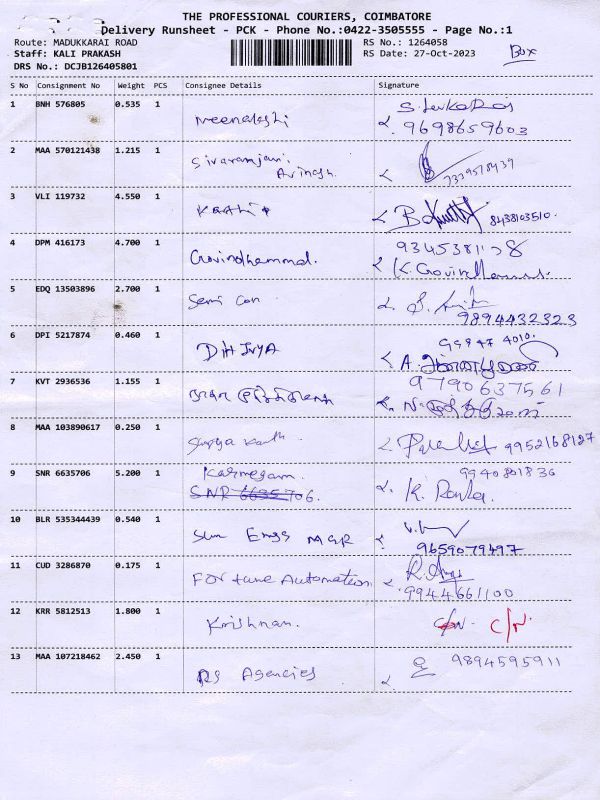 THE PROFESSIONAL COURIERS, COIMBATORE
Delivery Runsheet - PCK - Phone No.:0422-3505555 - Page No.:1
Route: MADUKKARAI ROAD RS No.: 1264058
Staff: KALI PRAKASH RS Date: 27-Oct-2023 Box
DRS No.: DCJB126405801
S No Consignment No Weight PCS Consignee Details Signature
1 BNH 576805 0.535 1 Meenakshi
9698659603
2 MAA 570121438 1.215 1 Sivaramjani
Avinash. 7339578439
3 VLI 119732 4.550 1 8438103510.
4 DPM 416173 4.700 1 Govindhammal.
5 EDQ 13503896 2.700 1 Semi Con
9894432323
6 DPI 5217874 0.460 1 99947 4010.
7 KVT 2936536 1.155 1 9790637561
8 MAA 103890617 0.250 1 Surya Kanth. 9952168127
9 SNR 6635706 5.200 1 Karmegam. 9940801836
SNR 6635706. K.
10 BLR 535344439 0.540 1 Sun Engg MGR
9659079497
11 CUD 3286870 0.175 1 Fortune Automation
9944661100
12 KRR 5812513 1.800 1 Krishnan. C/N. C/N.
13 MAA 107218462 2.450 1 RS Agencies 9894595911